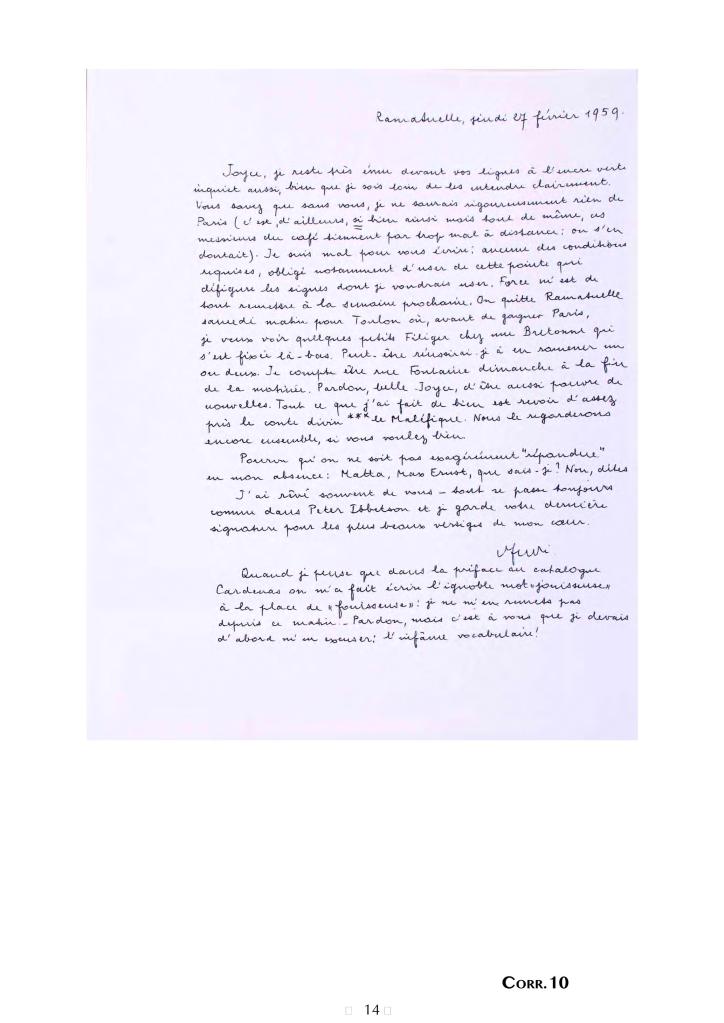 Ramatuelle, jeudi 27 février 1959.
Joyce, je reste très ému devant vos lignes à l'encre verte
inquiet aussi, bien que je sois loin de les entendre clairement.
Vous savez que sans vous, je ne saurais rigoureusement rien de
Paris (c'est, d'ailleurs, si bien ainsi mais tout de même, ces
messieurs du café tiennent par trop mal à distance : on s'en
doutait). Je suis mal pour vous écrire : aucune des conditions
requises, obligé notamment d'user de cette pointe qui
défigure les signes dont je voudrais user. Force m'est de
tout remettre à la semaine prochaine. On quitte Ramatuelle
samedi matin pour Toulon où, avant de gagner Paris,
je veux voir quelques petits Filiger chez une Bretonne qui
s'est fixée là-bas. Peut-être réussirai-je à en ramener un
ou deux. Je compte être rue Fontaine dimanche à la fin
de la matinée. Pardon, belle Joyce, d'être aussi pauvre de
nouvelles. Tout ce que j'ai fait de bien est revoir d'assez
près le conte divin *** le Maléfique. Nous le regarderons
encore ensemble, si vous voulez bien.
Pourvu qu'on ne soit pas exagérément "répandue"
en mon absence : Matta, Max Ernst, que sais-je ? Non, dites
J'ai rêvé souvent de vous – tout se passe toujours
comme dans Peter Ibbetson et je garde votre dernière
signature pour les plus beaux vertiges de mon cœur.
Quand je pense que dans la préface au catalogue
Cardenas on m'a fait écrire l'ignoble mot «jouisseuse»
à la place de «fouisseuse» : je ne m'en remets pas
depuis ce matin – Pardon, mais c'est à vous que je devais
d'abord m'en excuser : l'infâme vocabulaire !
CORR. 10
14